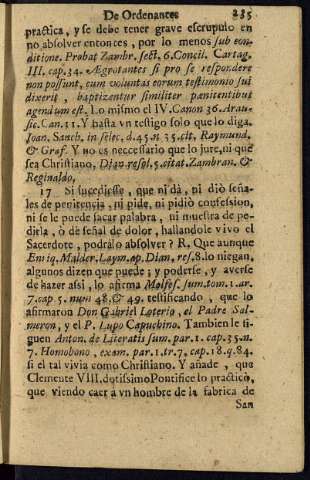 De Ordenantes 235
practica, y se debe tener grave escrupulo en
no absolver entonces, por lo menos sub con-
ditione. Probat Zambr. sect. 6. Concil. Cartag.
III. cap. 34. Ægrotantes si pro se respondere
non possunt, cum voluntas eorum testimonio sui
dixerit, baptizentur similiter pœnitentibus
agendum est. Lo mismo el IV. Canon 36. Arau-
sic. Can. 11. Y basta un testigo solo que lo diga.
Joan. Sanch. in selec. d. 45. n. 35. cit. Raymund.
& Graf. Y no es neccessario que lo jure, ni que
sea Christiano, Dian resol. 5. citat. Zambran. &
Reginaldo,
17 Si sucediesse, que ni dà, ni diò seña-
les de penitencia, ni pide, ni pidiò confession,
ni se le puede sacar palabra, ni muestra de pe-
dirla, ò dé señal de dolor, hallandole vivo el
Sacerdote, podràlo absolver? R. Que aunque
Enriq. Malder. Laym. op. Dian. res. 8. lo niegan,
algunos dizen que puede; y poderse, y averse
de hazer assi, lo afirma Molfes. sum. tom. 1. tr.
7. cap. 5. num 48. & 49. testificando, que lo
afirmaron Don Gabriel Loterio, el Padre Sal-
meron, y el P. Lupo Capuchino. Tambien le si-
guen Anton. de Literatis sum. par. 1. cap. 35. n.
7. Homobono, exam. par. 1. tr. 7. cap. 18. q. 84.
si el tal vivia como Christiano. Y añade, que
Clemente VIII. dotissimo Pontifice lo practicò,
que viendo caer à un hombre de la fabrica de
San